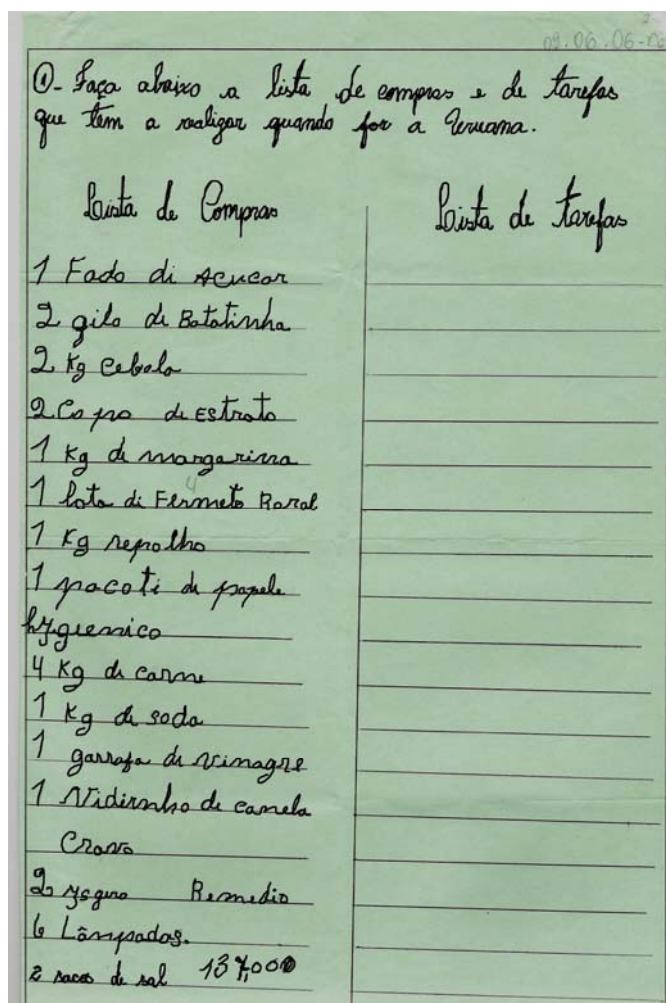 2
09.06.06
①- Faça abaixo a lista de compras e de tarefas
que têm a realizar quando for a Uruana.
Lista de Compras
1 Fado di Acucar
2 gilo di Batatinha
2 Kg Cebola
2 Copo de Estrato
1 Kg di margarinna
1 lata di Fermeto Roral
1 Kg repolho
1 pacoti di papele
hygienico
4 Kg di carne
1 Kg di soda
1 garrafa di vinagre
1 Vidirnho de canela
Cravo
2 Remedio
6 Lâmpadas.
2 sacos de sal 137,000
Lista de tarefas